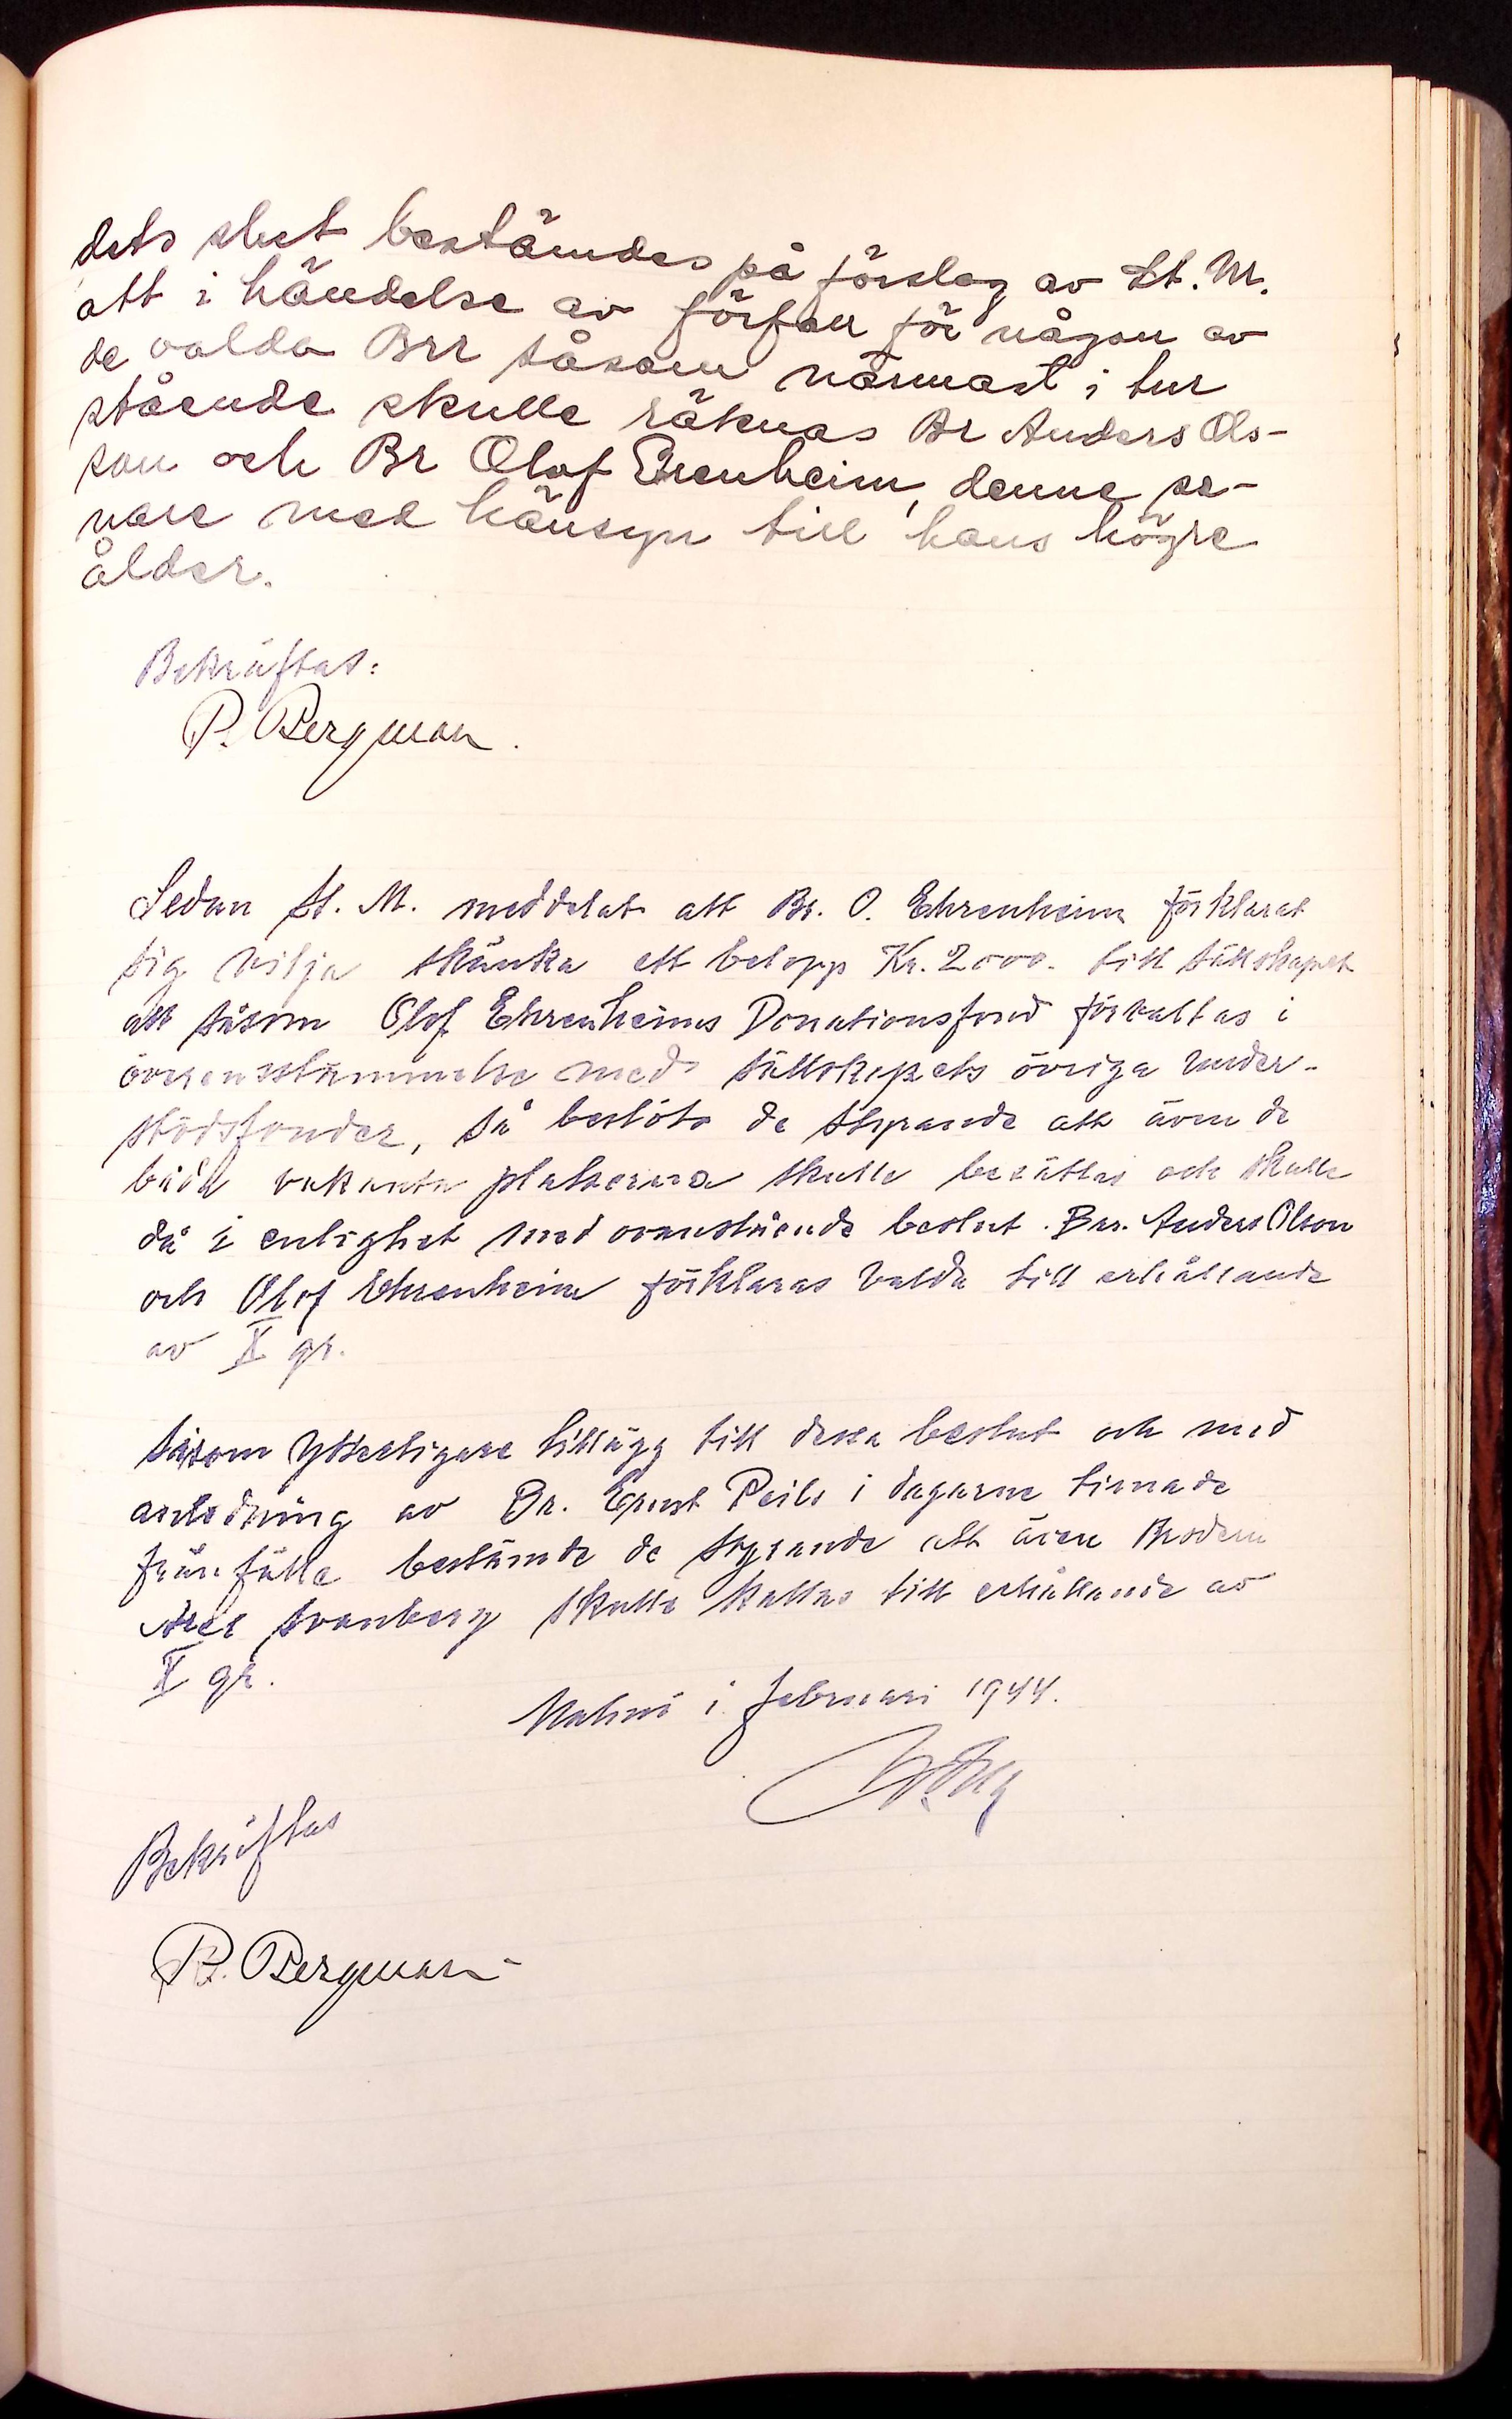 dets slut bestämdes på förslag av St. M.
att i händelse av förfall för någon av
de valda Brr såsom närmast i tur
stående skulle räknas Br Anders Ols-
son och Br Olof Ehrenheim, denne se-
nare med hänsyn till hans högre
ålder.
Bekräftas:
P. Bergman.
Sedan St. M. meddelat att Br. O. Ehrenheim förklarat
sig vilja skänka ett belopp Kr. 2000.- till sällskapet
att såsom Olof Ehrenheims Donationsfond förvaltas i
överensstämmelse med sällskapets övriga under-
stödsfonder, så beslöts de styrande att även de
båda vakanta platserna skulle besättas och skulle
då i enlighet med ovanstående beslut. Brr. Anders Olson
och Olof Ehrenheim förklaras valda till erhållande
av X gr.
Såsom ytterligare tillägg till dessa beslut och med
anledning av Br. Ernst Peils i dagarne timade
frånfälle bestämde de styrande att även Brodern
Axel Svanberg skulle kallas till erhållande av
X gr.
Malmö i februari 1944.
Bekräftas
P. Bergman